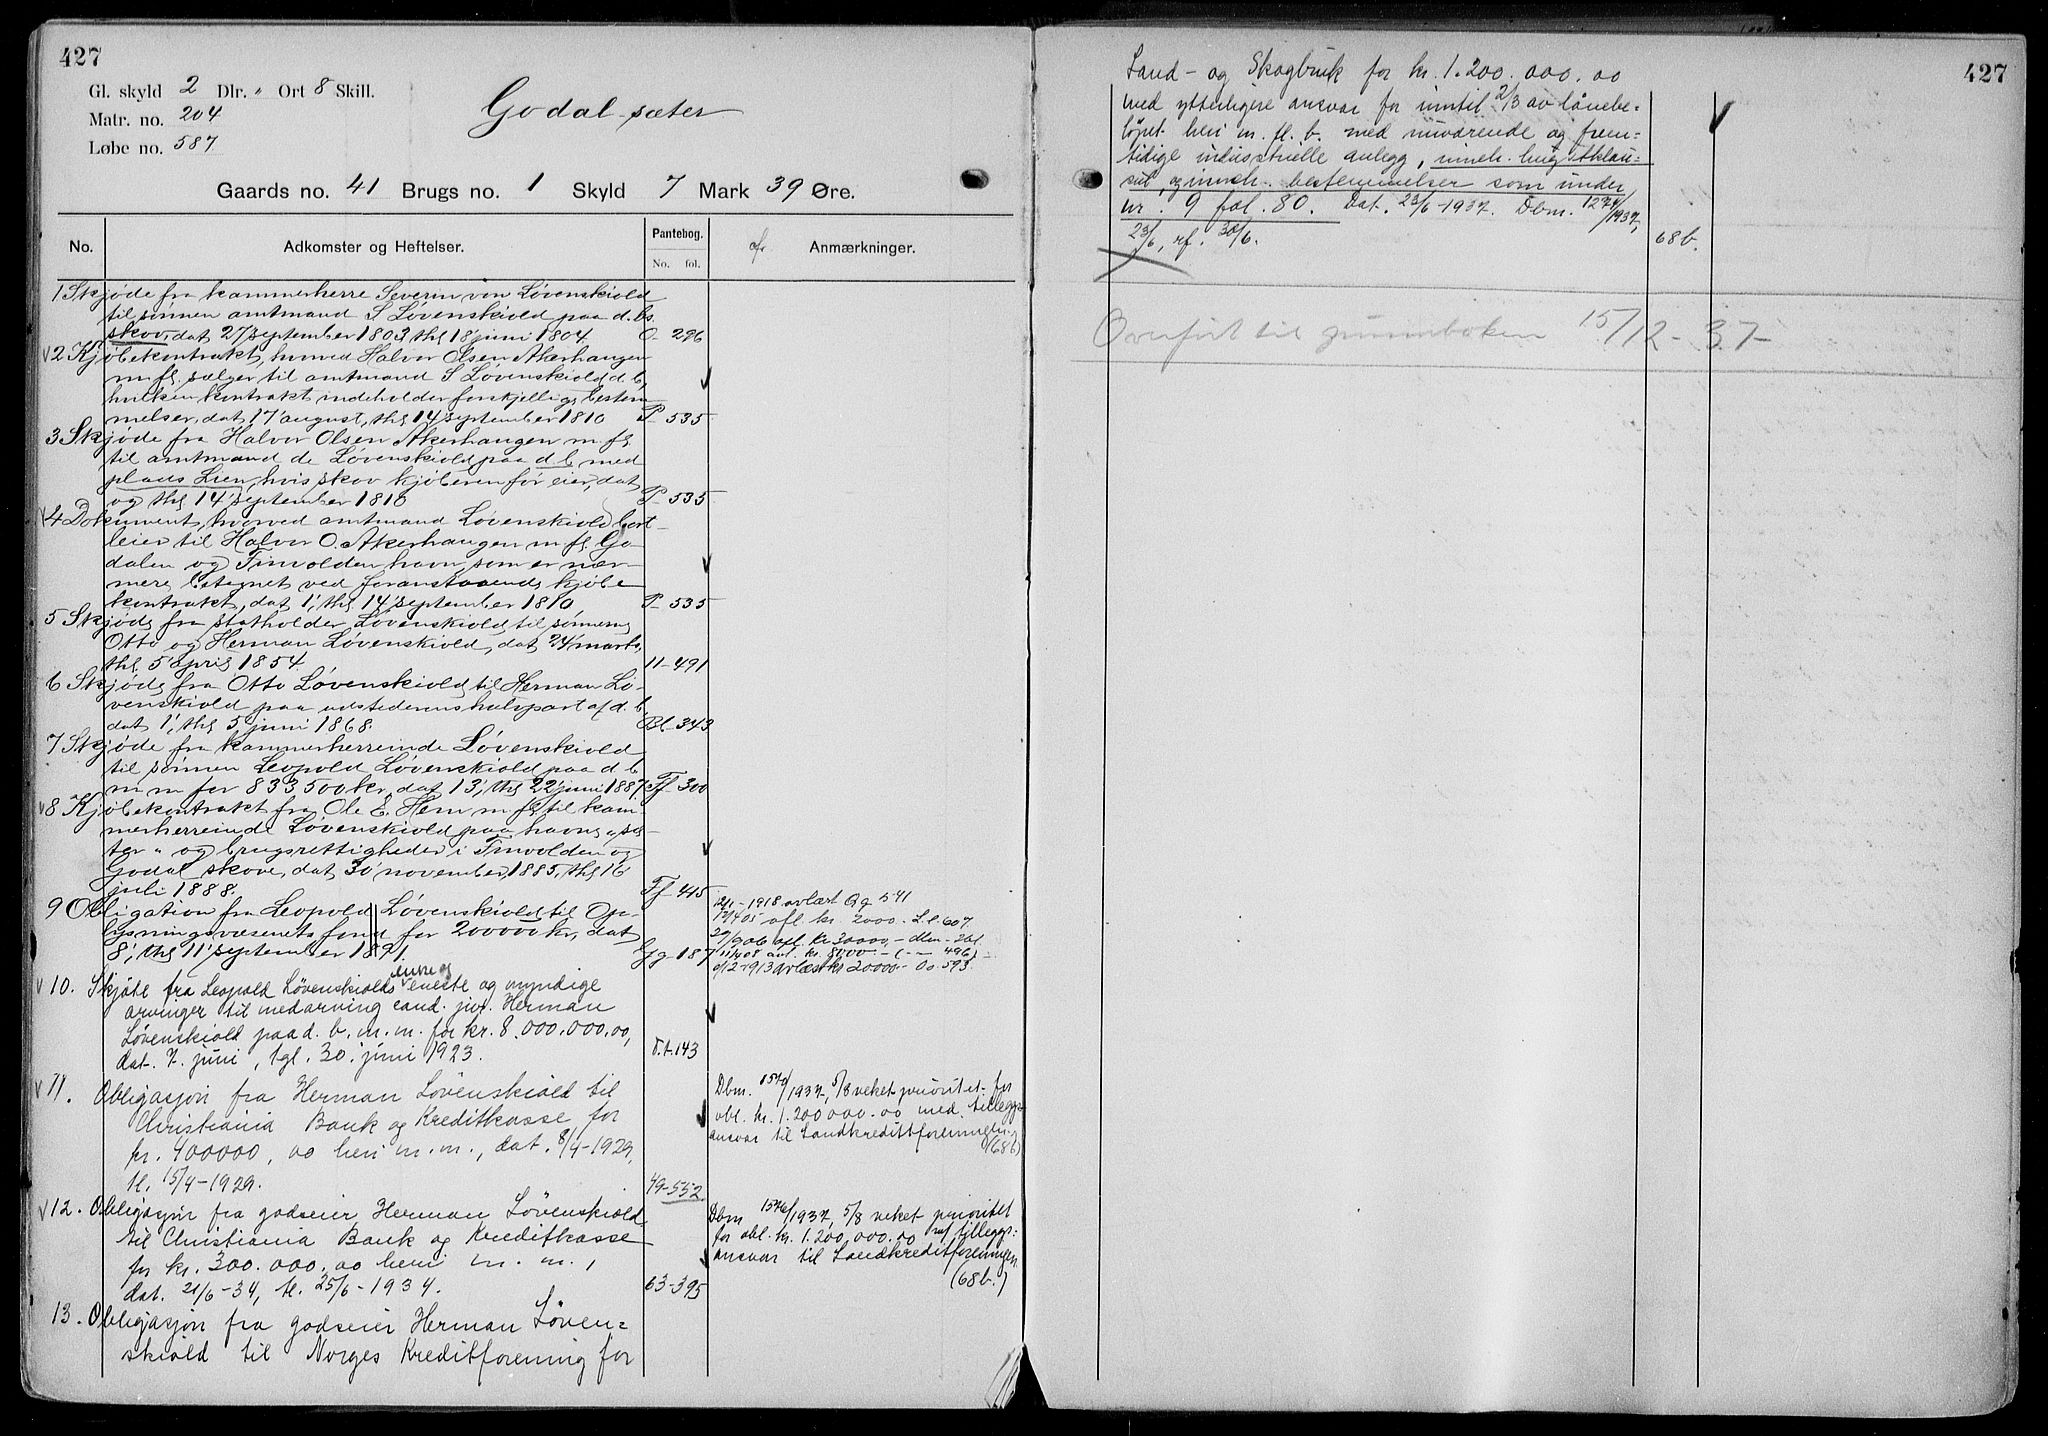 427
Gl. skyld 2 Dlr. " Ort 8 Skill.
Matr. no. 204
Løbe no. 587
Godal-sæter
Gaards no. 41 Brugs no. 1 Skyld 7 Mark 39 Øre.
No. Adkomster og Heftelser. Pantebog. No. fol. Anmærkninger.
1 Skjøde fra kammerherre Severin von Løvenskiold
til sønnen amtmand S Løvenskiold paa d. bs.
skov, dat 27 september 1803 thl 18 juni 1804. O- 296
2 Kjøbekontrakt, hvorved Halvor Olsen Akerhaugen
m. fl. sælger til amtmand S Løvenskiold d. b,
hvilken kontrakt indeholder forskjellige bestem
melser, dat 17 august, thl 14 september 1810 P- 535
3 Skjøde fra Halvor Olsen Akerhaugen m. fl
til amtmand de Løvenskiold paa d b med
plads Lien, hvis skov kjøberen før eier, dat
og thl 14 september 1810 P- 535
4 Dokument, hvorved amtmand Løvenskiold bort-
leier til Halvor O. Akerhaugen m. fl. Go-
dalen og Tinvolden havn, som er nær-
mere betegnet ved foranstaaende kjøbe
kontrakt, dat 1', thl 14' september 1810 P- 535
5 Skjøde fra statholder Løvenskiold til sønnerne
Otto og Herman Løvenskiold, dat 24 marts,
thl. 5 april 1854. 11-491
6 Skjøde fra Otto Løvenskiold til Herman Lø-
venskiold paa udstederens halvpart af d. b,
dat 1', thl 5 juni 1868. Bl-343
7 Skjøde fra kammerherreinde Løvenskiold
til sønnen Leopold Løvenskiold paa d b
m m for 833500 kr, dat 13', thl 22 juni 1887. Ff 300
8 Kjøbekontrakt fra Ole E. Hem m fl til kam-
merherreinde Løvenskiold paa havne, sæ-
ter- og brugsrettigheder i Tinvolden og
Godal skove, dat 30 november 1885, thl 16
juli 1888. Ff-415
9 Obligation fra Leopold Løvenskiold til Op-
lysningsvæsenets fond for 200000 kr, dat
8', thl 11' september 1891. Gg-187
1918 avlæst Qg 541
17/4 05 afl kr. 2000.- L.l. 607
29/9 06 afl. kr 30000,-
11/4 08 avl. kr. 8000 - (-- 496)
6/12-1913 avlæst kr 20000.- Oo. 593.
10. Skjøte fra Leopold Løvenskiolds enke og eneste og myndige
arvinger til medarving cand. jur. Herman
Løvenskiold paa d. b. m. m. for kr. 8.000.000,00,
dat. 7. juni, tgl. 30. juni 1923. 143
11. Obligasjon fra Herman Løvenskiold til
Christiania Bank og Kreditkasse for
kr. 400000,00 heri m.m., dat. 8/4-1929,
tl. 15/4-1929. 49-552
Dbm. 1937, 5/8 veket prioritet for
obl. kr. 1.200 000.00 med tilleggs-
ansvar til Landkredittforeningen.
(68b)
12. Obligasjon fra godseier Herman Løvenskiold
til Christiania Bank og Kreditkasse
for kr. 300.000,00 heri m. m.,
dat. 21/6-34, tl. 25/6-1934. 63-395
Dbm 1937, 5/8 veket prioritet
for obl. kr. 1.200.000.00 m/ tilleggs-
ansvar til Landkreditforeningen.
(68b.)
13. Obligasjon fra godseier Herman Løven=
skiold til Norges Kreditforening for
427
Land- og Skogbruk for kr. 1.200.000.00
med ytterligere ansvar for inntil 2/3 av lånebe=
løpet heri m. fl. b. med nuværende og frem=
tidige industrielle anlegg, inneh. hugstklau=
sul, og inneh. bestemmelser som under
nr. 9 fol. 80. Dat. 23/6-1937. Dbm. 1274/1937,
23/6, rf. 30/6. 68b.
Overført til grunnboken 15/12-37-